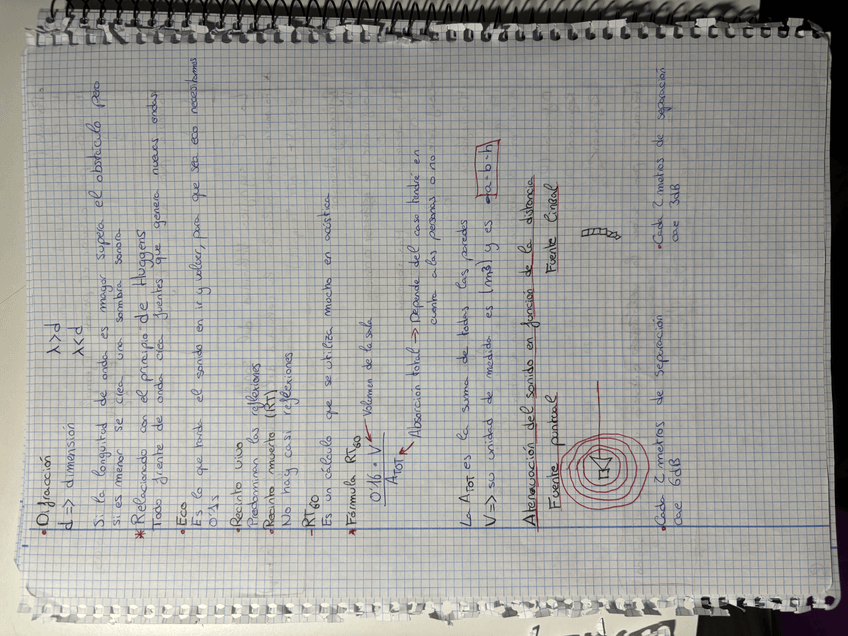 • Difracción
d => dimensión    λ>d
λ<d
Si la longuitud de onda es mayor supera el obstáculo pero
si es menor se crea una sombra sonora
* Relacionado con el prinpio de Huggens
Todo frente de onda crea fuentes que genera nuevas ondas.
• Eco
Es lo que tarda el sonido en ir y volver, para que sea eco necesitamos
0'1s
• Recinto vivo
Predominan las reflexiones
• Recinto muerto (RT)
No hay casi reflexiones
- RT60
Es un cálculo que se utiliza mucho en acústica
* Fórmula RT60
0'16 · V → Volumen de la sala
ATOT → Absorcion total → Depende del caso tendré en
cuenta a las personas o no
La ATOT es la suma de todas las paredes
V => su unidad de medida es (m3) y es a·b·h
Atenuación del sonido en función de la distancia
Fuente puntual    Fuente lineal
• Cada 2 metros de separación    • Cada 2 metros de separación
cae 6dB    cae 3dB